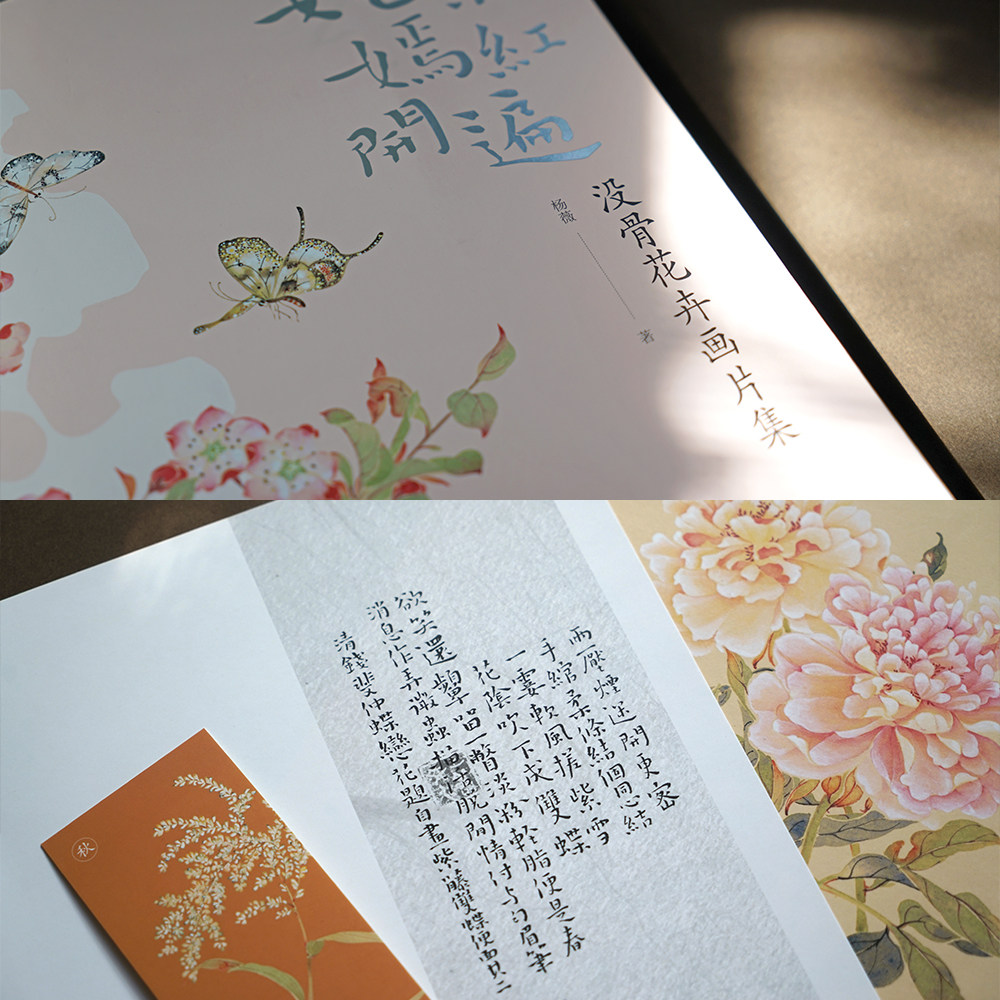 嫣紅
開遍
没骨花卉画片集
杨薇
著
雨壓煙送開更密
手綰柔條結個同心結
一霎軟風搓紫雪
花陰吹下成雙蝶
欲笑還顰唱一瞥淡粉輕脂便是春
消息作弄蟲脫閒情付与句眉筆
清錢斐仲蝶戀花題自畫紫藤雙蝶便面其二
秋